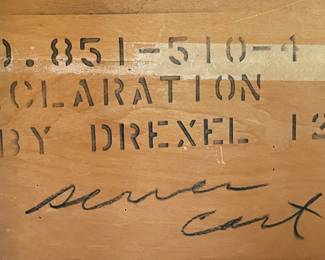 O.851-510-4
CLARATION
BY DREXEL 12
server
cart